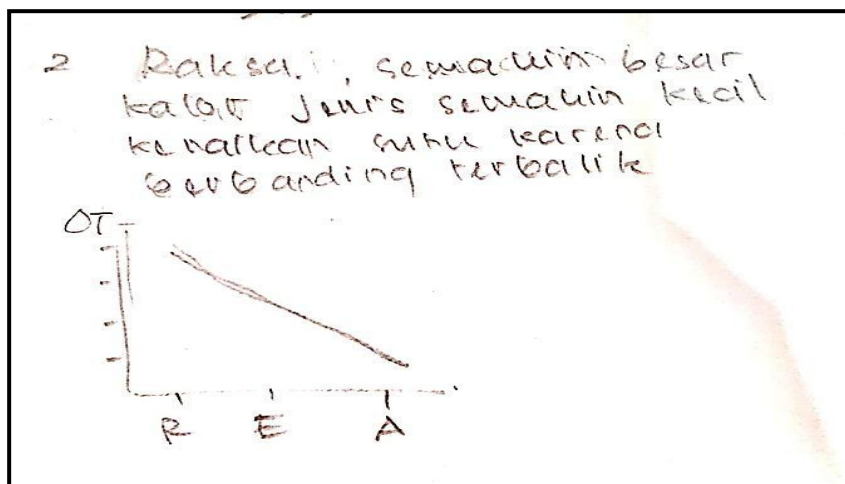 2 Raksa, semakin besar
kalor jenis semakin kecil
kenaikan suhu karena
berbanding terbalik
ΔT
R E A